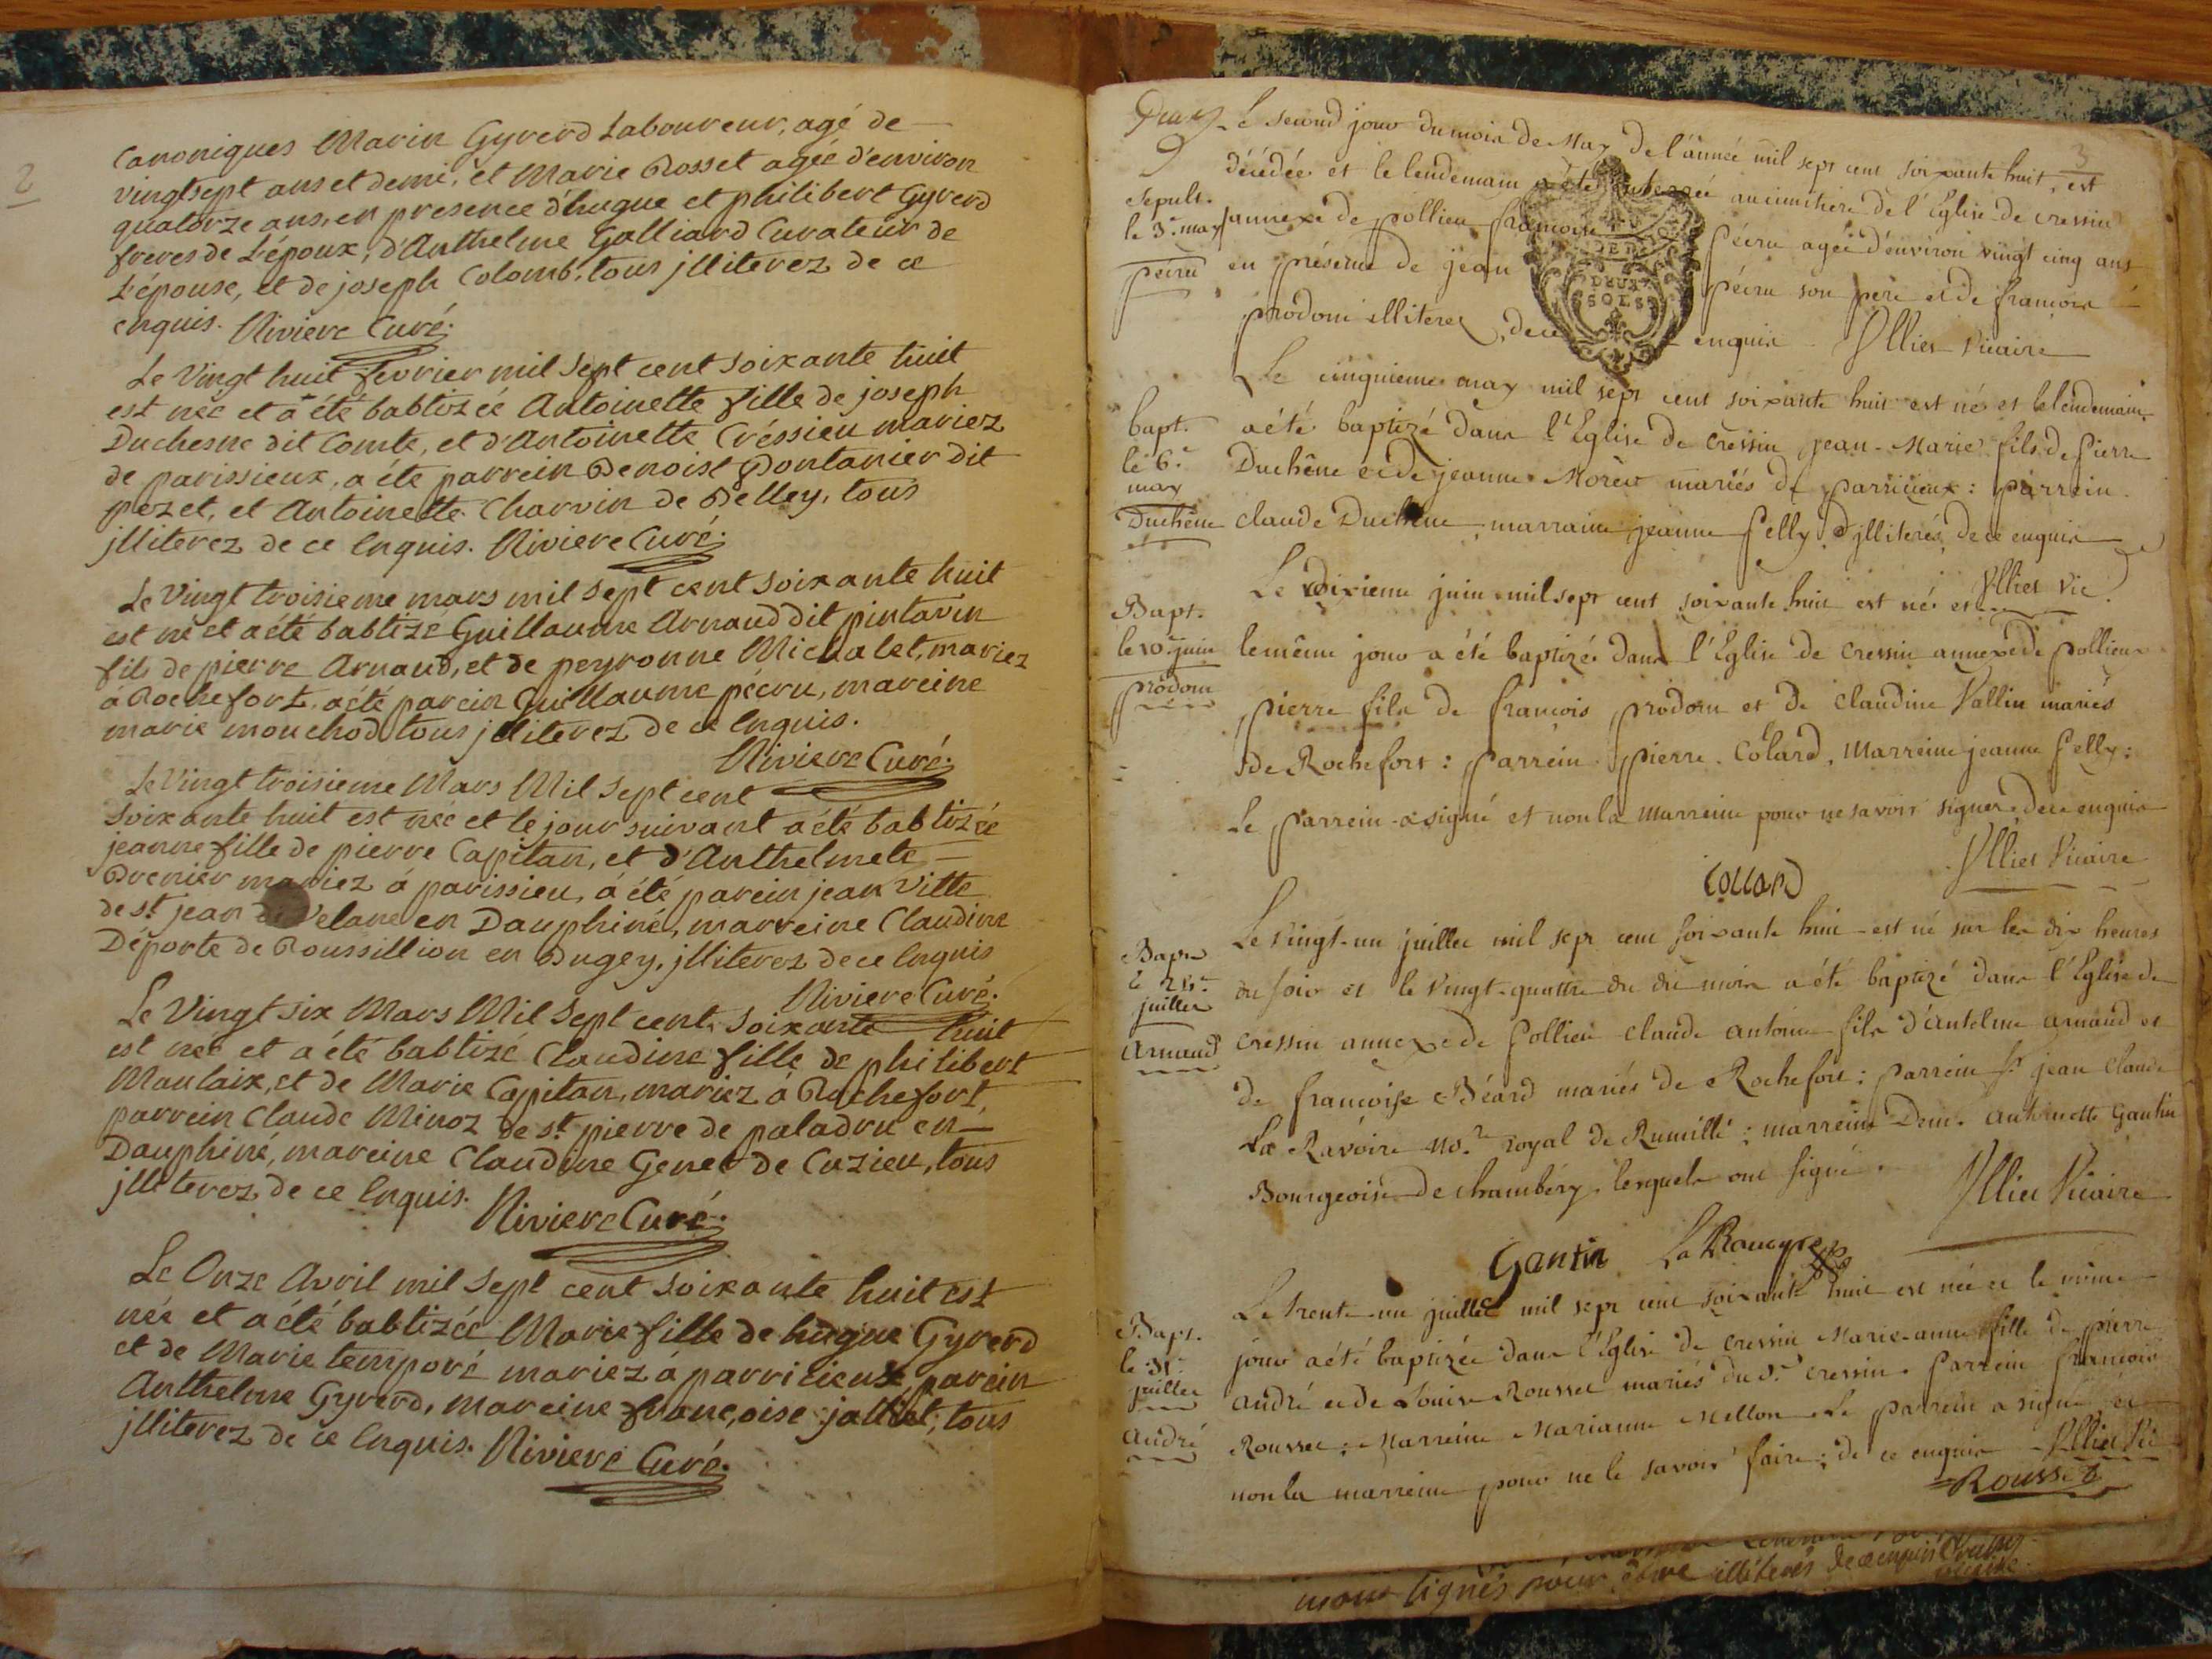 2
Canoniques Marin Gyrerd Laboureur, agé de
vingtsept ans et demi, et Marie Rosset agée d'environ
quatorze ans, en presence d'hugue et philibert Gyrerd
freres de L'époux, d'Anthelme Galliard Curateur de
L'épouse, et de joseph Colomb, tous jlliterez de ce
enquis. Riviere Curé.
Le Vingt huit fevrier mil sept cent soixante huit
est née et a été babtizée Antoinette fille de joseph
Duchesne dit Comte, et d'Antoinette Créssieu mariez
de parissieux, a éte parrein Benoist Pontanier dit
pezet, et Antoinette Charvin de Belley, tous
jlliterez de ce Enquis. Riviere Curé.
Le Vingt troisieme mars mil sept cent soixante huit
est né et a été babtize Guillaume Arnaud dit pintavin
fils de pierre Arnaud, et de peyronne Michalet, mariez
à Rochefort, a été parein Guillaume pécru, mareine
marie mouchod tous jlliterez de ce Enquis.
Riviere Curé.
Le Vingt troisieme Mars Mil Sept cent
soixante huit est née et le jour suivant a été babtizée
jeanne fille de pierre Capitan, et d'Anthelmete
Brenier mariez á parissieu, á été parein jean Ville
de st. jean de Velane en Dauphiné, marreine Claudine
Déporte de Roussillion en Bugey, jlliterez de ce Enquis
Riviere Curé.
Le Vingt six Mars Mil Sept cent soixante huit
est née et a été babtizé Claudine fille de philibert
Maulaix, et de Marie Capitan, mariez á Rochefort,
parrein Claude Minoz de st. pierre de paladru en
Dauphiné, mareine Claudine Genet de Cuzieu, tous
jlliterez de ce Enquis. Riviere Curé.
Le Onze Avril mil Sept cent soixante huit est
née et a été babtizée Marie fille de hugue Gyrerd
et de Marie temporé mariez á parricieux parein
Anthelme Gyrerd, mareine françoise jalliet, tous
jlliterez de ce Enquis. Riviere Curé.
3
Le second jour du mois de May de l'année mil sept cent soixante huit, est
décédée et le lendemain a été enterrée au cimitière de l'Eglise de cressin
Sepult.
le 3.e may
pécru
annexe de pollieu françoise pécru agée d'environ vingt cinq ans
en présence de jean pécru son père et de françois
prodom illiterés, de ce enquis Yllier Vicaire
DEUX
SOLS
Le cinquieme may mil sept cent soixante huit est né et le lendemain
bapt.
le 6.e
may
Duchêne
a été baptizé dans l'Eglise de cressin jean-Marie fils de pierre
Duchêne et de jeanne Morèt mariés de parricieux: parrein
claude Duchene, marraine jeanne felly jlliterés, de ce enquis
Yllier Vic.
Le dixieme juin mil sept cent soixante huit est né et
Bapt.
le 10.e juin
prodom
le même jour a été baptizé dans l'Eglise de cressin annexe de pollieu
pierre fils de francois prodom et de claudine Vallin mariés
de Rochefort: parrein pierre Colard, Marreine jeanne felly:
Le parrein a signé et non la marreine pour ne savoir signer de ce enquis
Collard Yllier Vicaire
Le vingt-un juillet mil sept cent soixante huit est né sur les dix heures
Bapt.
juillet
Arnaud
du soir et le vingt-quattre du dit mois a été baptizé dans l'Eglise de
cressin annexe de pollieu claude antoine fils d'antelme arnaud et
de francoise Béard mariés de Rochefort: parrein sr. jean claude
La Ravoire no.re royal de Rumillé; marreine Dem. antoinette Gantin
Bourgeoise de chambéry, lesquels ont signé.
Yllier Vicaire
Gantin
Le trente-un juillet mil sept cent soixante huit est née et le même
Bapt.
le 31.e
juillet
andré
jour a été baptizée dans l'Eglise de cressin Marie-anne fille de pierre
andré et de Louise Rousset mariés du d.t cressin. parrein francois
Rousset: Marreine Marianne Mellon. Le parrein a signé et
non la marreine pour ne le savoir faire; de ce enquis Yllier Vic
Rousset
signés pour être illitérés de ce enquis